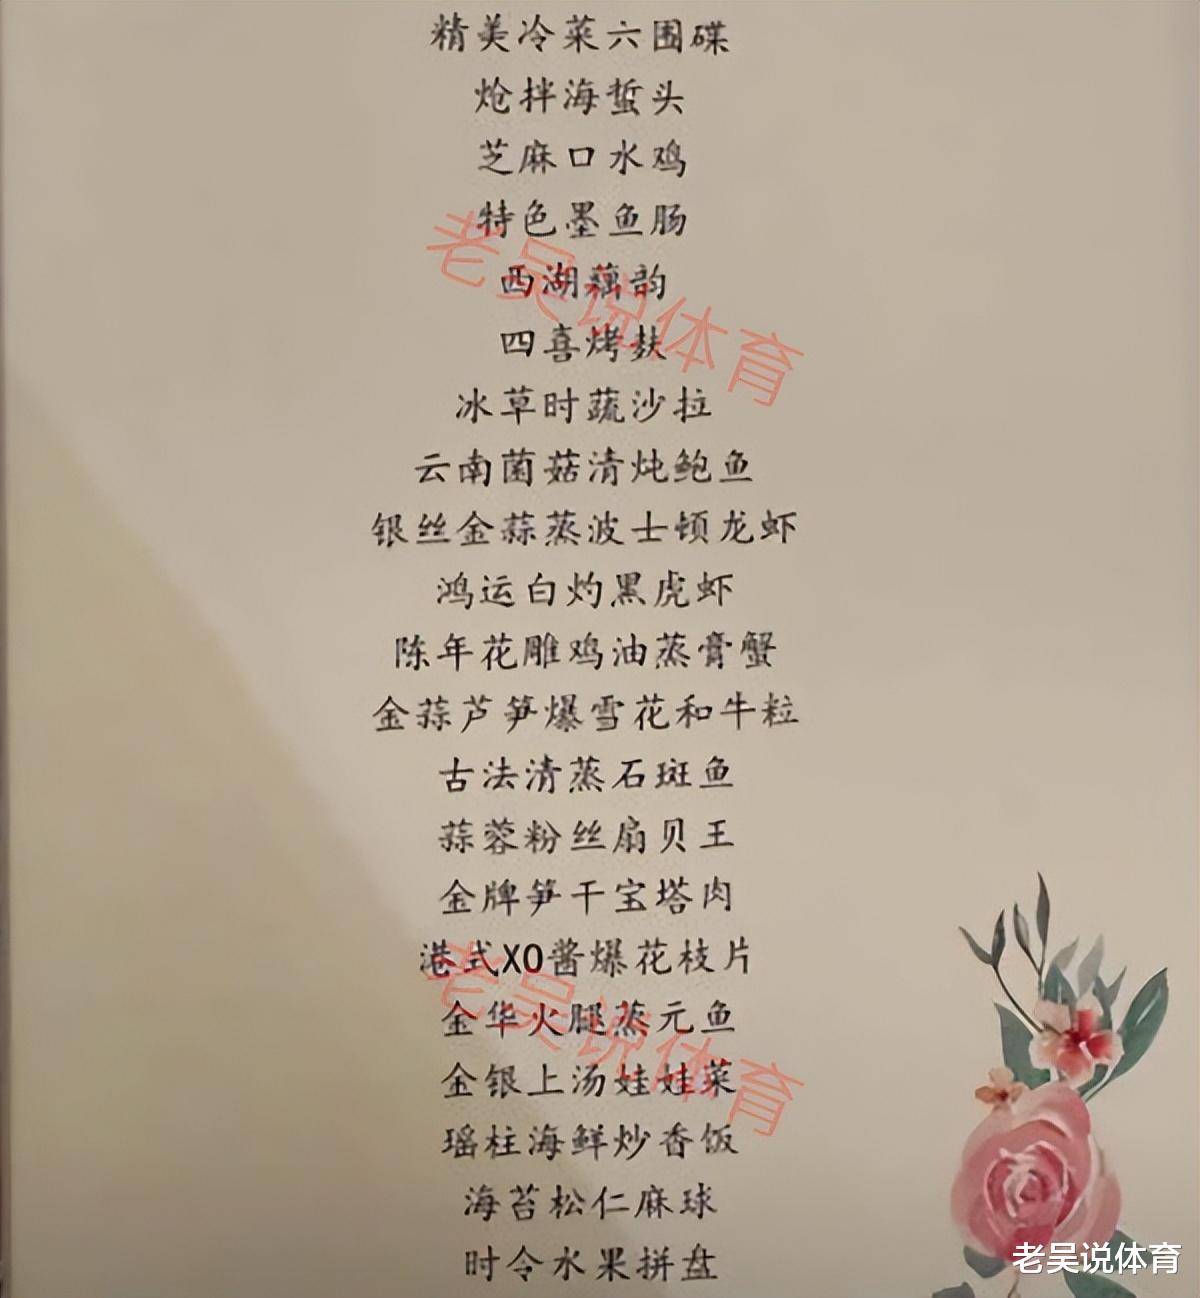 精美冷菜六围碟
炝拌海蜇头
芝麻口水鸡
特色墨鱼肠
西湖藕韵
四喜烤麸
冰草时蔬沙拉
云南菌菇清炖鲍鱼
银丝金蒜蒸波士顿龙虾
鸿运白灼黑虎虾
陈年花雕鸡油蒸膏蟹
金蒜芦笋爆雪花和牛粒
古法清蒸石斑鱼
蒜蓉粉丝扇贝王
金牌笋干宝塔肉
港式XO酱爆花枝片
金华火腿蒸元鱼
金银上汤娃娃菜
瑶柱海鲜炒香饭
海苔松仁麻球
时令水果拼盘
老吴说体育
老吴说体育
老吴说体育